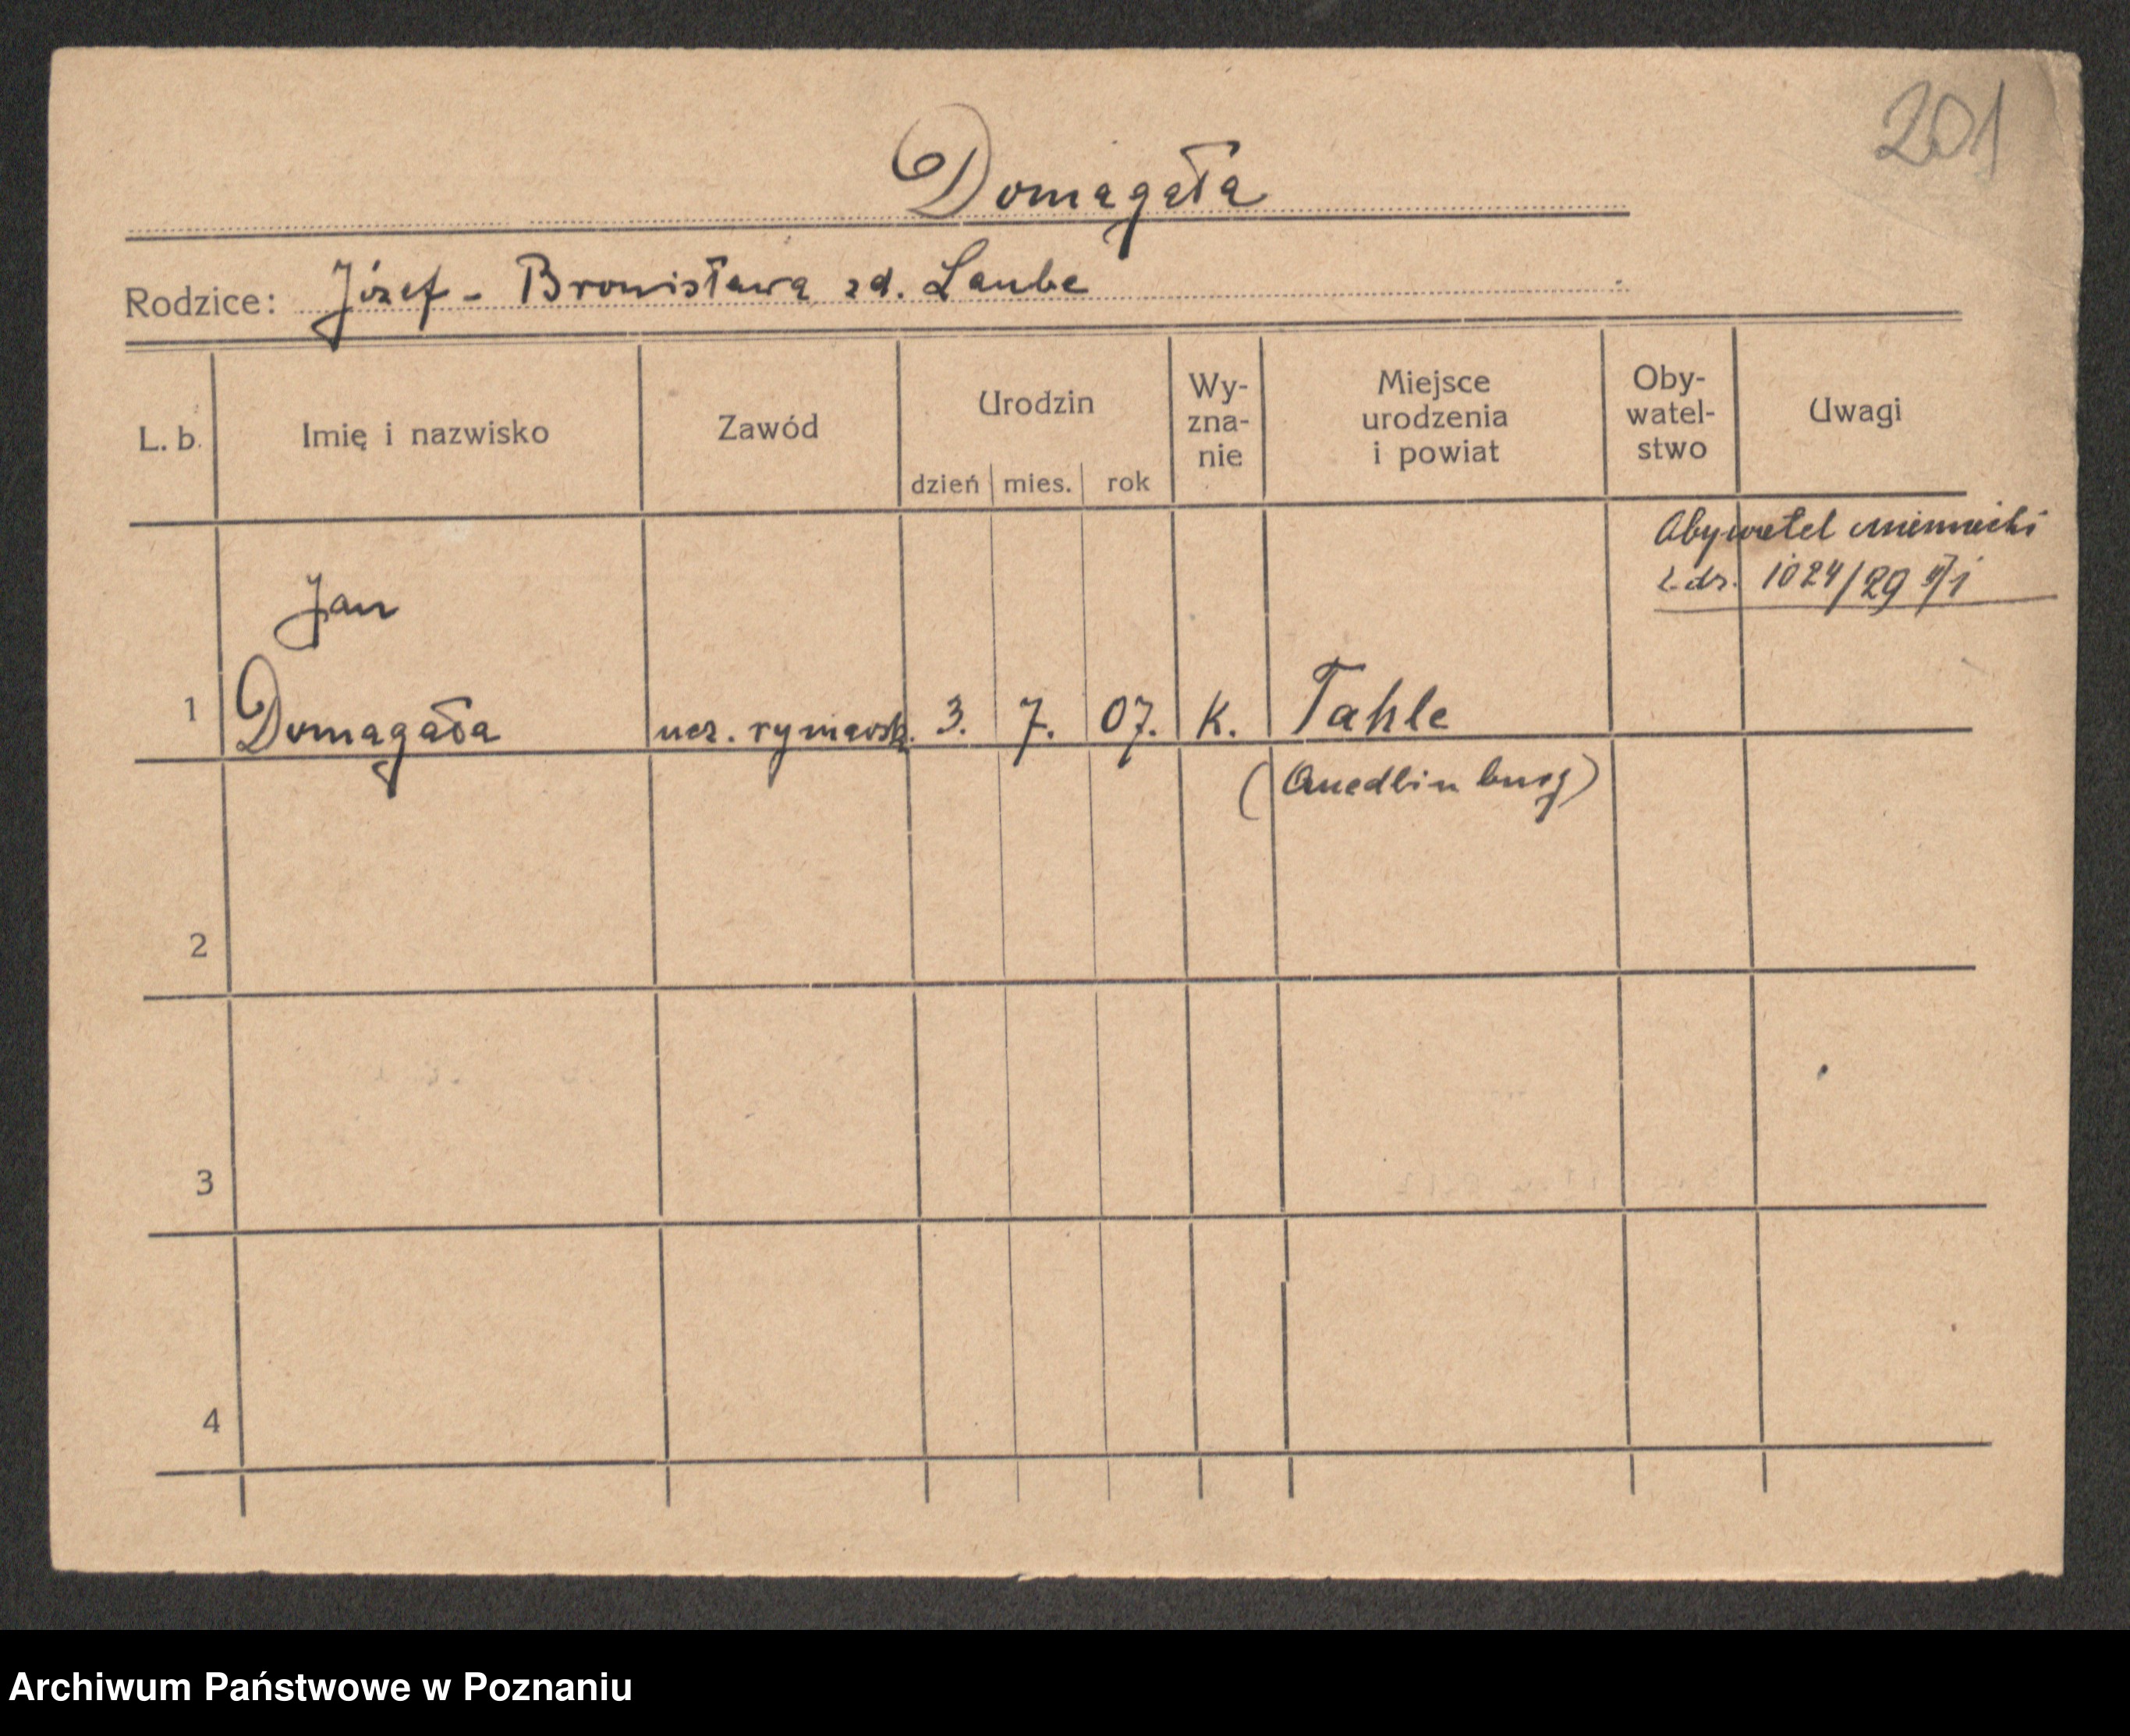 201
Domagała
Rodzice: Józef - Bronisława zd. Laube
L. b. Imię i nazwisko Zawód Urodzin dzień mies. rok Wy-zna-nie Miejsce urodzenia i powiat Oby-watel-stwo Uwagi
Obywatel niemiecki
l. dz. 1024/29
Jan
1 Domagała ucz. rymarsk. 3. 7. 07. K. Tahle
(Quedlinburg)
2
3
4
Archiwum Państwowe w Poznaniu